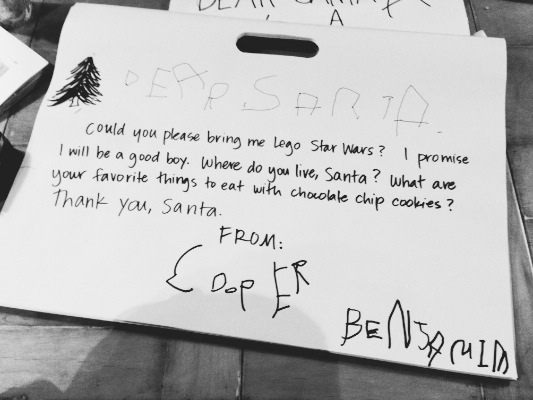 DEAR SANTA
A
DEAR SANTA.
Could you please bring me Lego Star Wars? I promise
I will be a good boy. Where do you live, Santa? What are
your favorite things to eat with chocolate chip cookies?
Thank you, Santa.
FROM:
COOPER
BENJAMIN